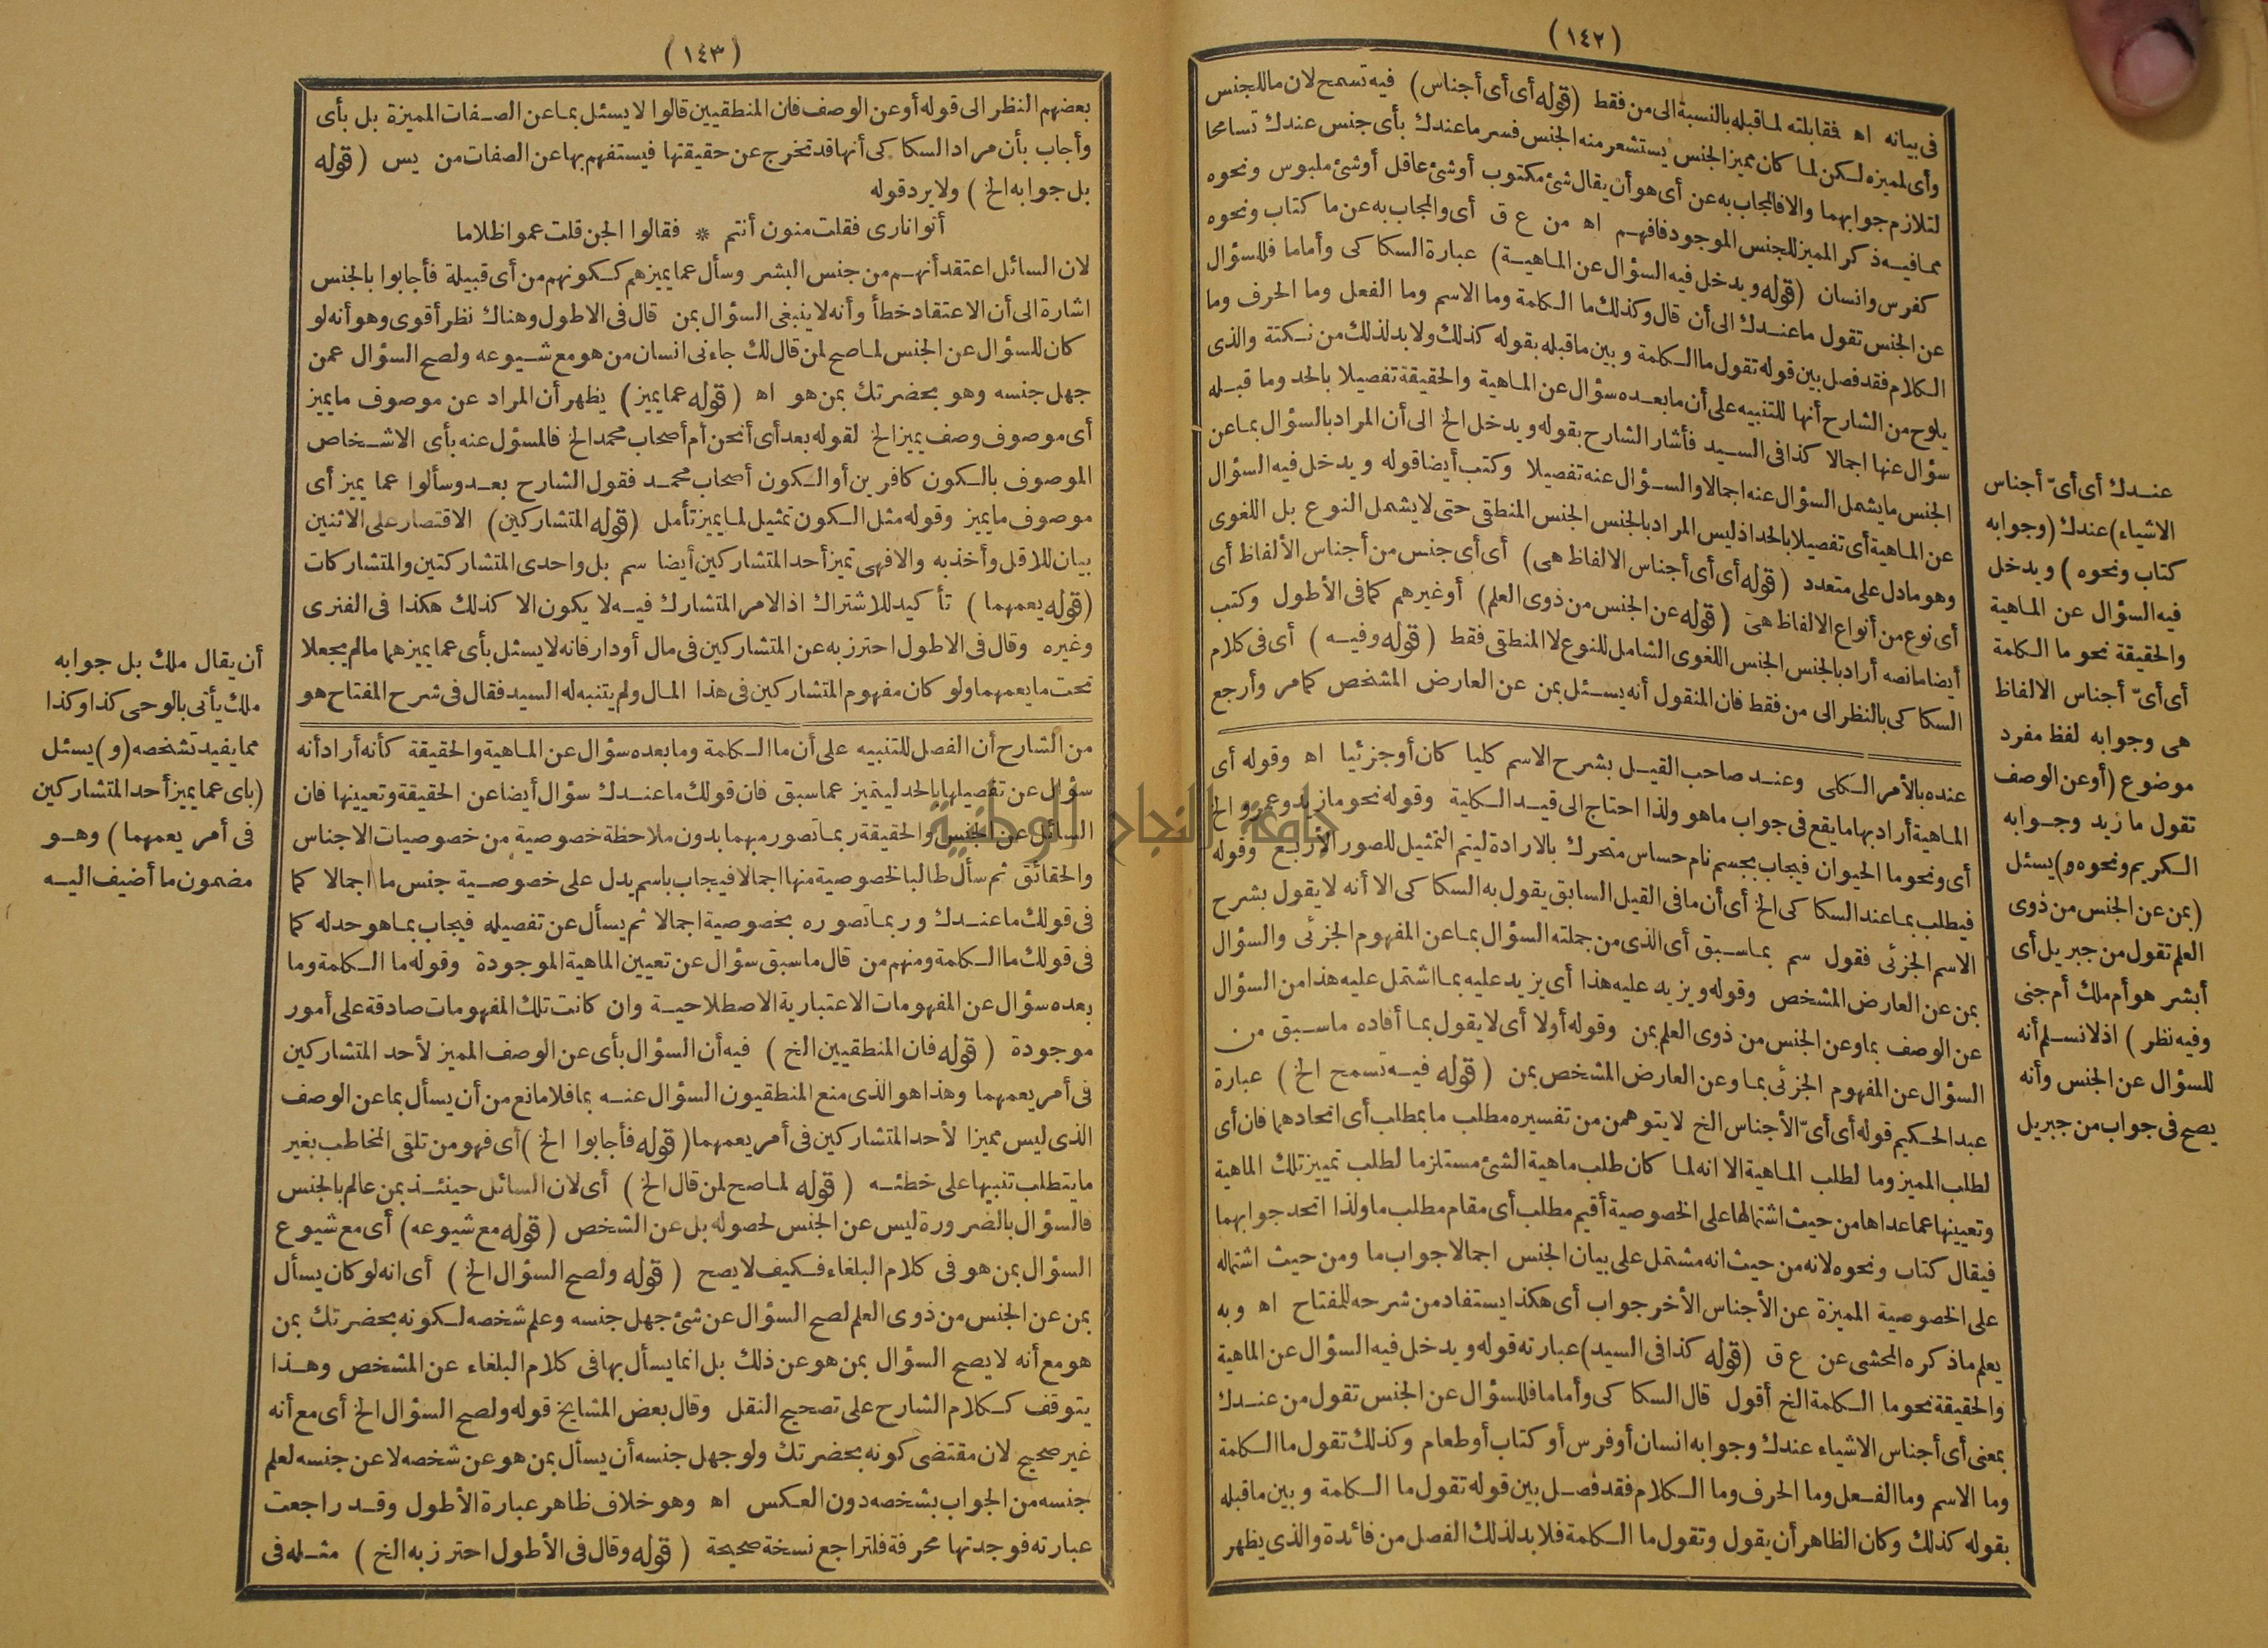 (١٤٢)
فى بيانه اه فقابلته لما قبله بالنسبة الى من فقط (قوله أى أى أجناس) فيه تسمح لان ما للجنس
وأى لمميزه لكن لما كان مميز الجنس يستشعر منه الجنس فسر ما عندك بأى جنس عندك تسامحا
لتلازم جوابهما والا فالمجاب به عن أى هو أن يقال شئ مكتوب أو شئ عاقل أو شئ ملبوس ونحوه
مما فيه ذكر المميز للجنس الموجود فافهم اه من ع ق أى والمجاب به عن ما كتاب ونحوه
كفرس وانسان (قوله ويدخل فيه السؤال عن الماهية) عبارة السكاكى وأما ما فللسؤال
عن الجنس تقول ما عندك الى أن قال وكذلك ما الكلمة وما الاسم وما الفعل وما الحرف وما
الكلام فقد فصل بين قوله تقول ما الكلمة وبين ما قبله بقوله كذلك ولا بد لذلك من نكتة والذى
يلوح من الشارح أنها للتنبيه على أن ما بعده سؤال عن الماهية والحقيقة تفصيلا بالحد وما قبله
سؤال عنها اجمالا كذا فى السيد فأشار الشارح بقوله ويدخل الخ الى أن المراد بالسؤال بما عن
الجنس ما يشمل السؤال عنه اجمالا والسؤال عنه تفصيلا وكتب أيضا قوله ويدخل فيه السؤال
عن الماهية أى تفصيلا بالحد اذ ليس المراد بالجنس الجنس المنطقى حتى لا يشمل النوع بل اللغوى
وهو ما دل على متعدد (قوله أى أى أجناس الالفاظ هى) أى أى جنس من أجناس الألفاظ أى
أى نوع من أنواع الالفاظ هى (قوله عن الجنس من ذوى العلم) أو غيرهم كما فى الأطول وكتب
أيضا ما نصه أراد بالجنس الجنس اللغوى الشامل للنوع لا المنطقى فقط (قوله وفيه) أى فى كلام
السكاكى بالنظر الى من فقط فان المنقول أنه يسئل بمن عن العارض المشخص كما مر وأرجع
عنده بالأمر الكلى وعند صاحب القيل بشرح الاسم كليا كان أو جزئيا اه وقوله أى
الماهية أراد بها ما يقع فى جواب ما هو ولذا احتاج الى قيد الكلية وقوله نحو ما زيد وعمرو الخ
أى ونحو ما الحيوان فيجاب بجسم نام حساس متحرك بالارادة ليتم التمثيل للصور الأربع وقوله
فيطلب بما عند السكاكى الخ أى أن ما فى القيل السابق يقول به السكاكى الا أنه لا يقول بشرح
الاسم الجزئى فقول سم بما سبق أى الذى من جملته السؤال بما عن المفهوم الجزئى والسؤال
بمن عن العارض المشخص وقوله ويزيد عليه هذا أى يزيد عليه بما اشتمل عليه هذا من السؤال
عن الوصف بما وعن الجنس من ذوى العلم بمن وقوله أولا أى لا يقول بما أفاده ما سبق من
السؤال عن المفهوم الجزئى بما وعن العارض المشخص بمن (قوله فيه تسمح الخ) عبارة
عبد الحكيم قوله أى أىّ الأجناس الخ لا يتوهمن من تفسيره مطلب ما بمطلب أى اتحادهما فان أى
لطلب المميز وما لطلب الماهية الا انه لما كان طلب ماهية الشئ مستلزما لطلب تمييز تلك الماهية
وتعيينها عما عداها من حيث اشتمالها على الخصوصية أقيم مطلب أى مقام مطلب ما ولذا اتحد جوابهما
فيقال كتاب ونحوه لانه من حيث انه مشتمل على بيان الجنس اجمالا جواب ما ومن حيث اشتماله
على الخصوصية المميزة عن الأجناس الأخر جواب أى هكذا يستفاد من شرحه للمفتاح اه وبه
يعلم ما ذكره المحشى عن ع ق (قوله كذا فى السيد) عبارته قوله ويدخل فيه السؤال عن الماهية
والحقيقة نحو ما الكلمة الخ أقول قال السكاكى وأما ما فللسؤال عن الجنس تقول من عندك
بمعنى أى أجناس الاشياء عندك وجوابه انسان أو فرس أو كتاب أو طعام وكذلك تقول ما الكلمة
وما الاسم وما الفعل وما الحرف وما الكلام فقد فصل بين قوله تقول ما الكلمة وبين ما قبله
بقوله كذلك وكان الظاهر أن يقول وتقول ما الكلمة فلا بد لذلك الفصل من فائدة والذى يظهر
عندك أى أىّ أجناس
الاشياء) عندك (وجوابه
كتاب ونحوه) ويدخل
فيه السؤال عن الماهية
والحقيقة نحو ما الكلمة
أى أىّ أجناس الالفاظ
هى وجوابه لفظ مفرد
موضوع (أو عن الوصف
تقول ما زيد وجوابه
الكريم ونحوه و) يسئل
(بمن عن الجنس من ذوى
العلم تقول من جبريل أى
أبشر هو أم ملك أم جنى
وفيه نظر) اذ لا نسلم أنه
للسؤال عن الجنس وأنه
يصح فى جواب من جبريل
(١٤٣)
بعضهم النظر الى قوله أو عن الوصف فان المنطقيين قالوا لا يسئل بما عن الصفات المميزة بل بأى
وأجاب بأن مراد السكاكى أنها قد تخرج عن حقيقتها فيستفهم بها عن الصفات من يس (قوله
بل جوابه الخ) ولا يرد قوله
أتوا نارى فقلت منون أنتم * فقالوا الجن قلت عموا ظلاما
لان السائل اعتقد أنهم من جنس البشر وسأل عما يميزهم ككونهم من أى قبيلة فأجابوا بالجنس
اشارة الى أن الاعتقاد خطأ وأنه لا ينبغى السؤال بمن قال فى الاطول وهناك نظر أقوى وهو أنه لو
كان للسؤال عن الجنس لما صح لمن قال لك جاءنى انسان من هو مع شيوعه ولصح السؤال عمن
جهل جنسه وهو بحضرتك بمن هو اه (قوله عما يميز) يظهر أن المراد عن موصوف ما يميز
أى موصوف وصف يميز الخ لقوله بعد أى أنحن أم أصحاب محمد الخ فالمسؤل عنه بأى الاشخاص
الموصوف بالكون كافرين أو الكون أصحاب محمد فقول الشارح بعد وسألوا عما يميز أى
موصوف ما يميز وقوله مثل الكون تمثيل لما يميز تأمل (قوله المتشاركين) الاقتصار على الاثنين
بيان للاقل وأخذ به والا فهى تميز أحد المتشاركين أيضا سم بل واحدى المتشاركتين والمتشاركات
(قوله يعمهما) تأكيد للاشتراك اذ الامر المتشارك فيه لا يكون الا كذلك هكذا فى الفنرى
وغيره وقال فى الاطول احترز به عن المتشاركين فى مال أو دار فانه لا يسئل بأى عما يميزهما ما لم يجعلا
تحت ما يعمهما ولو كان مفهوم المتشاركين فى هذا المال ولم يتنبه له السيد فقال فى شرح المفتاح هو
من الشارح أن الفصل للتنبيه على أن ما الكلمة وما بعده سؤال عن الماهية والحقيقة كأنه أراد أنه
سؤال عن تفصيلها بالحد ليتميز عما سبق فان قولك ما عندك سؤال أيضا عن الحقيقة وتعيينها فان
السائل عن الجنس والحقيقة ربما تصور مبهما بدون ملاحظة خصوصية من خصوصيات الاجناس
والحقائق ثم سأل طالبا لخصوصية منها اجمالا فيجاب باسم يدل على خصوصية جنس ما اجمالا كما
فى قولك ما عندك وربما تصوره بخصوصية اجمالا ثم يسأل عن تفصيله فيجاب بما هو حد له كما
فى قولك ما الكلمة ومنهم من قال ما سبق سؤال عن تعيين الماهية الموجودة وقوله ما الكلمة وما
بعده سؤال عن المفهومات الاعتبارية الاصطلاحية وان كانت تلك المفهومات صادقة على أمور
موجودة (قوله فان المنطقيين الخ) فيه أن السؤال بأى عن الوصف المميز لأحد المتشاركين
فى أمر يعمهما وهذا هو الذى منع المنطقيون السؤال عنه بما فلا مانع من أن يسأل بما عن الوصف
الذى ليس مميزا لأحد المتشاركين فى أمر يعمهما (قوله فأجابوا الخ) أى فهو من تلقى المخاطب بغير
ما يتطلب تنبيها على خطئه (قوله لما صح لمن قال الخ) أى لان السائل حينئذ بمن عالم بالجنس
فالسؤال بالضرورة ليس عن الجنس لحصوله بل عن الشخص (قوله مع شيوعه) أى مع شيوع
السؤال بمن هو فى كلام البلغاء فكيف لا يصح (قوله ولصح السؤال الخ) أى انه لو كان يسأل
بمن عن الجنس من ذوى العلم لصح السؤال عن شئ جهل جنسه وعلم شخصه لكونه بحضرتك بمن
هو مع أنه لا يصح السؤال بمن هو عن ذلك بل انما يسأل بها فى كلام البلغاء عن المشخص وهذا
يتوقف ككلام الشارح على تصحيح النقل وقال بعض المشايخ قوله ولصح السؤال الخ أى مع أنه
غير صحيح لان مقتضى كونه بحضرتك ولو جهل جنسه أن يسأل بمن هو عن شخصه لا عن جنسه لعلم
جنسه من الجواب بشخصه دون العكس اه وهو خلاف ظاهر عبارة الأطول وقد راجعت
عبارته فوجدتها محرفة فلتراجع نسخة صحيحة (قوله وقال فى الأطول احترز به الخ) مثله فى
أن يقال ملك بل جوابه
ملك يأتى بالوحى كذا وكذا
مما يفيد تشخصه (و) يسئل
(باى عما يميز أحد المتشاركين
فى أمر يعمهما) وهو
مضمون ما أضيف اليه
جامعة النجاح الوطنية